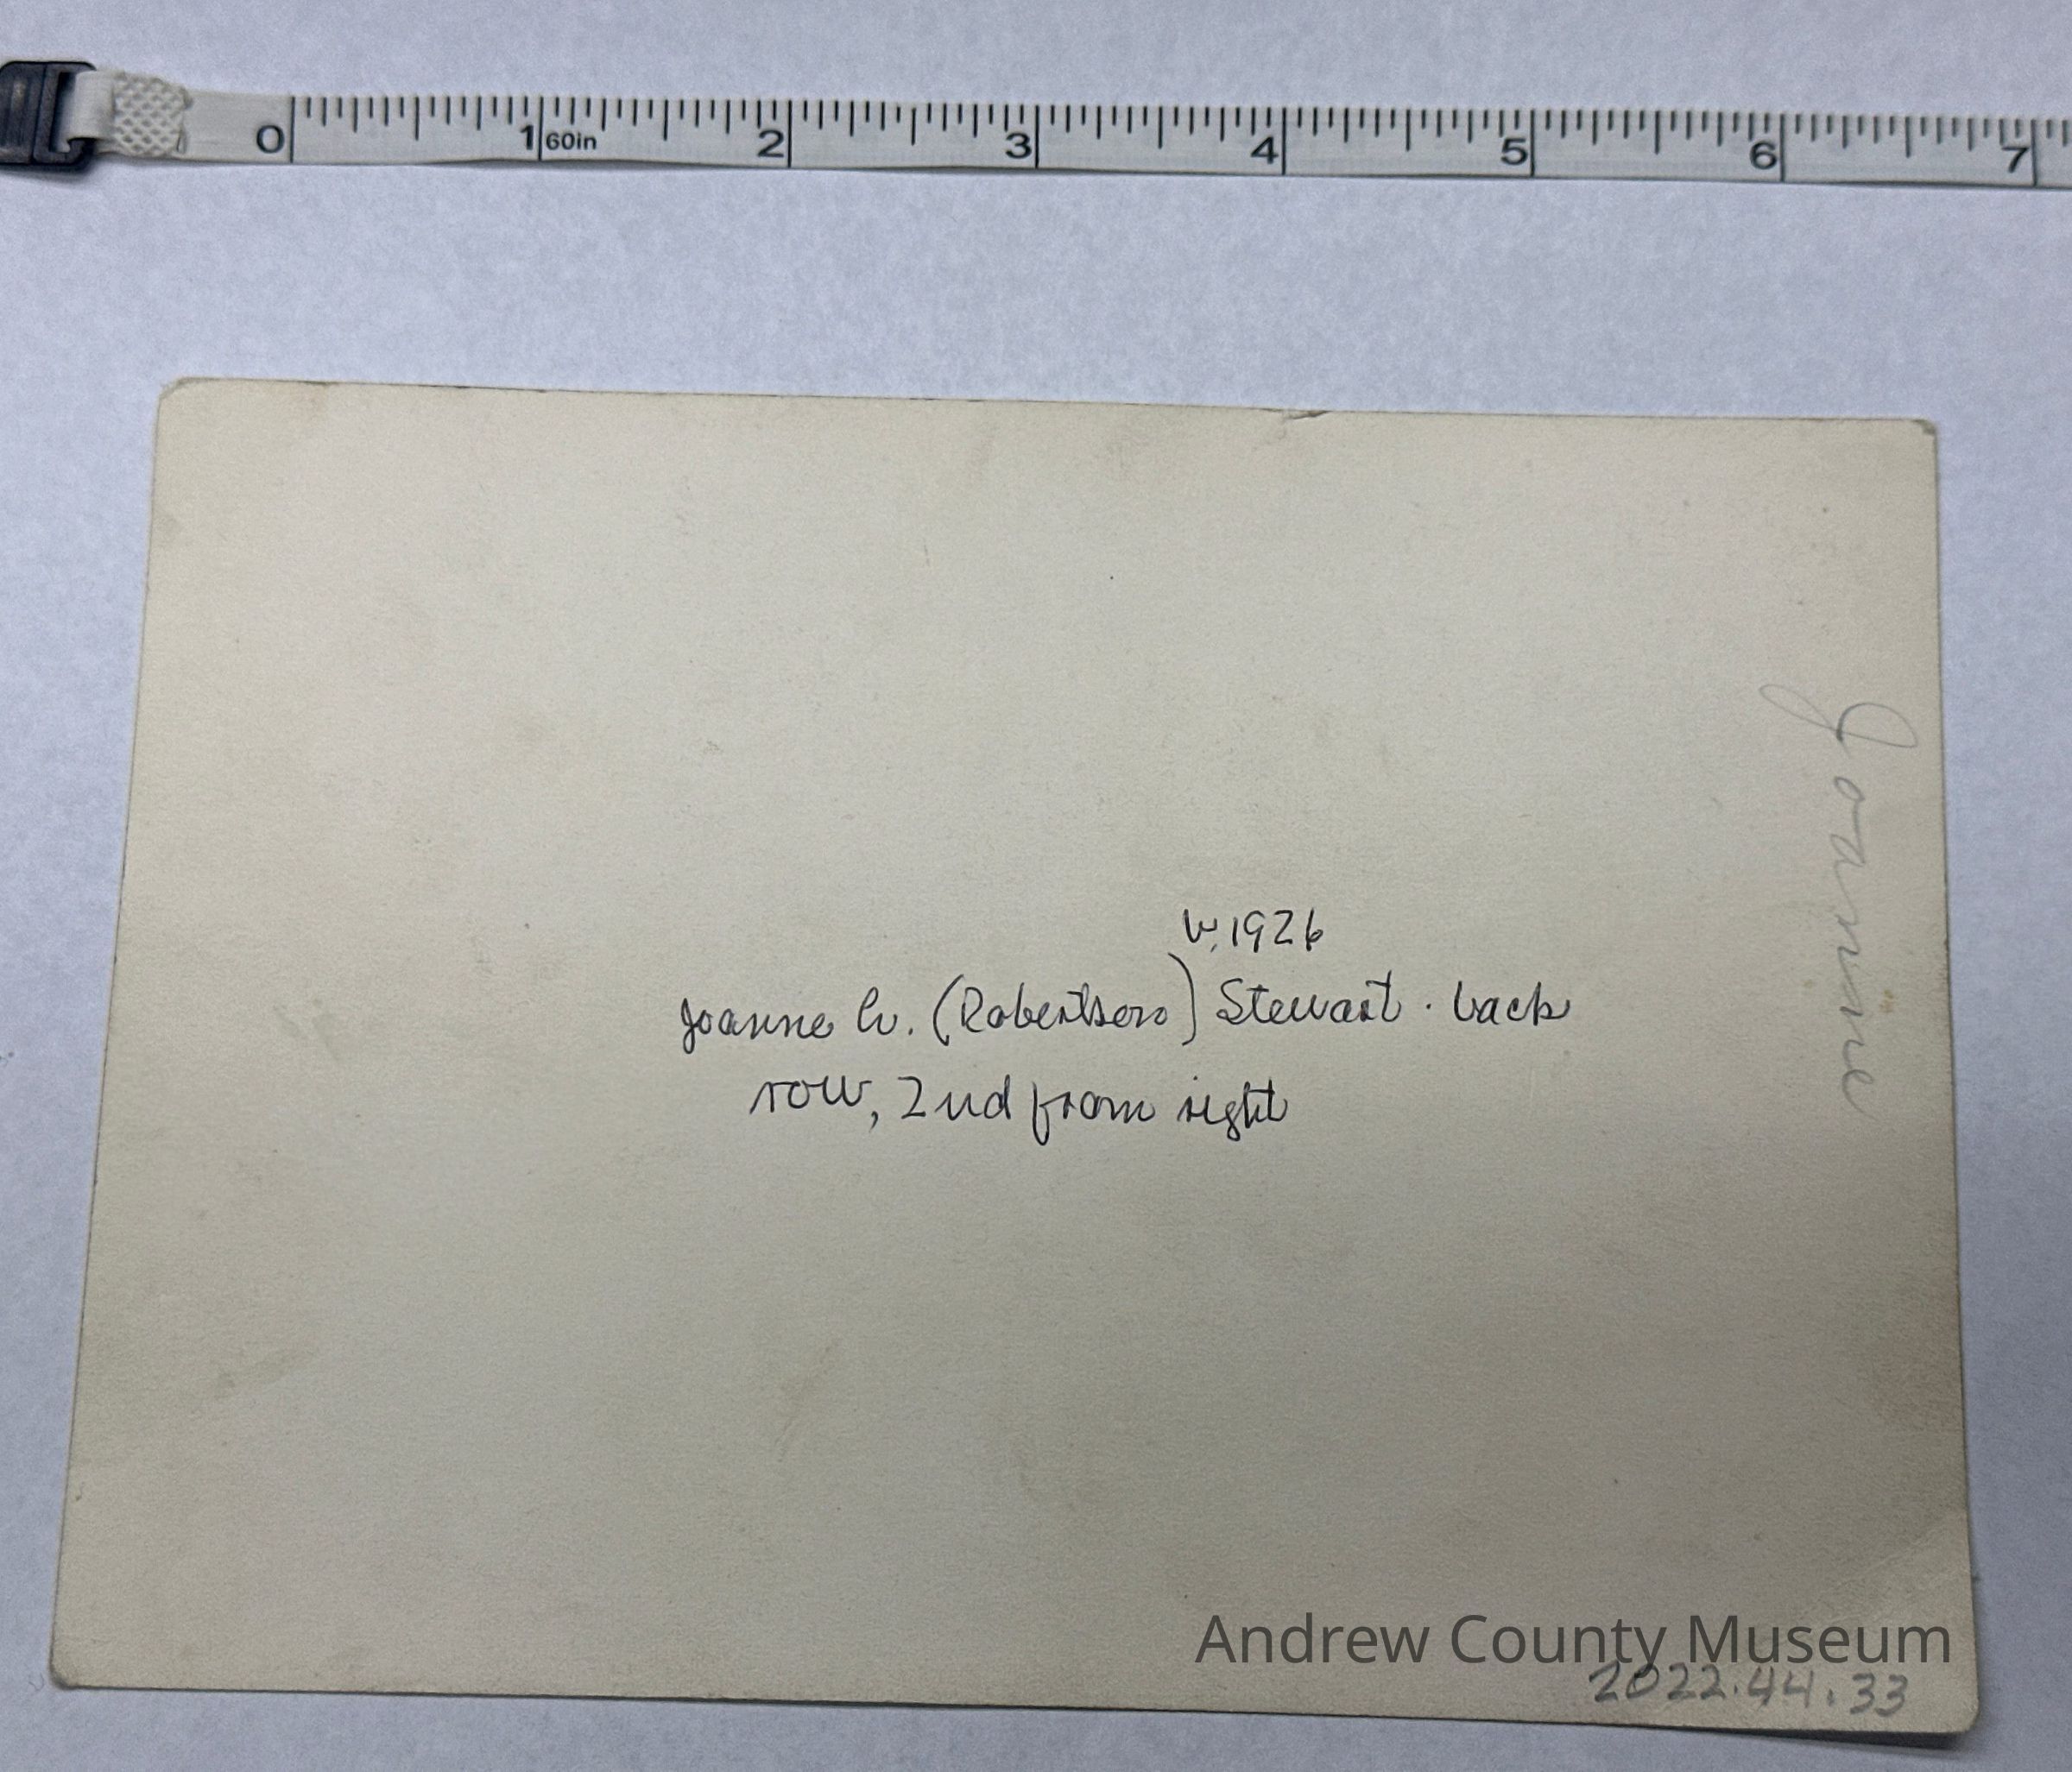 0 1 60in 2 3 4 5 6 7
Joanne
b. 1926
Joanne (Robertson) Stewart. back
row, 2nd from right
Andrew County Museum
2022.44.33